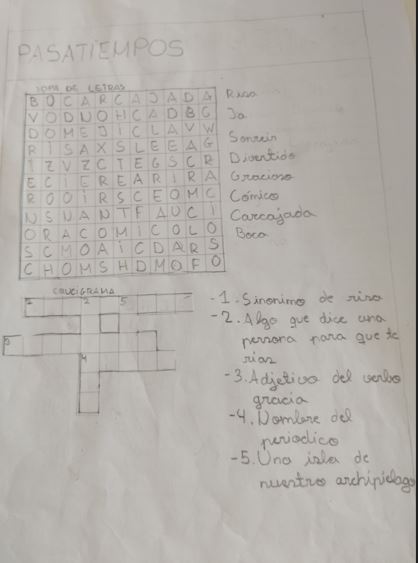 PASATIEMPOS
SOPA DE LETRAS
B O C A R C A J A D A
V O D U O H C A D B C
D O M E J I C L A V W
R I S A X S L E E A G
I Z V Z C T E G S C R
E C I E R E A R I R A
R O O I R S C E O M C
N S U A N T F A U C I
O R A C O M I C O L O
S C M O A I C D A R S
C H O M S H D M O F O
Risa
Ja
Sonreir
Divertido
Gracioso
Cómico
Carcajada
Boca
CRUCIGRAMA
1
2
5
3
4
-1. Sinonimo de risa
-2. Algo que dice una
persona para que te
rias
-3. Adjetivo del verbo
gracia
-4. Nombre del
periodico
-5. Una isla de
nuestro archipielago